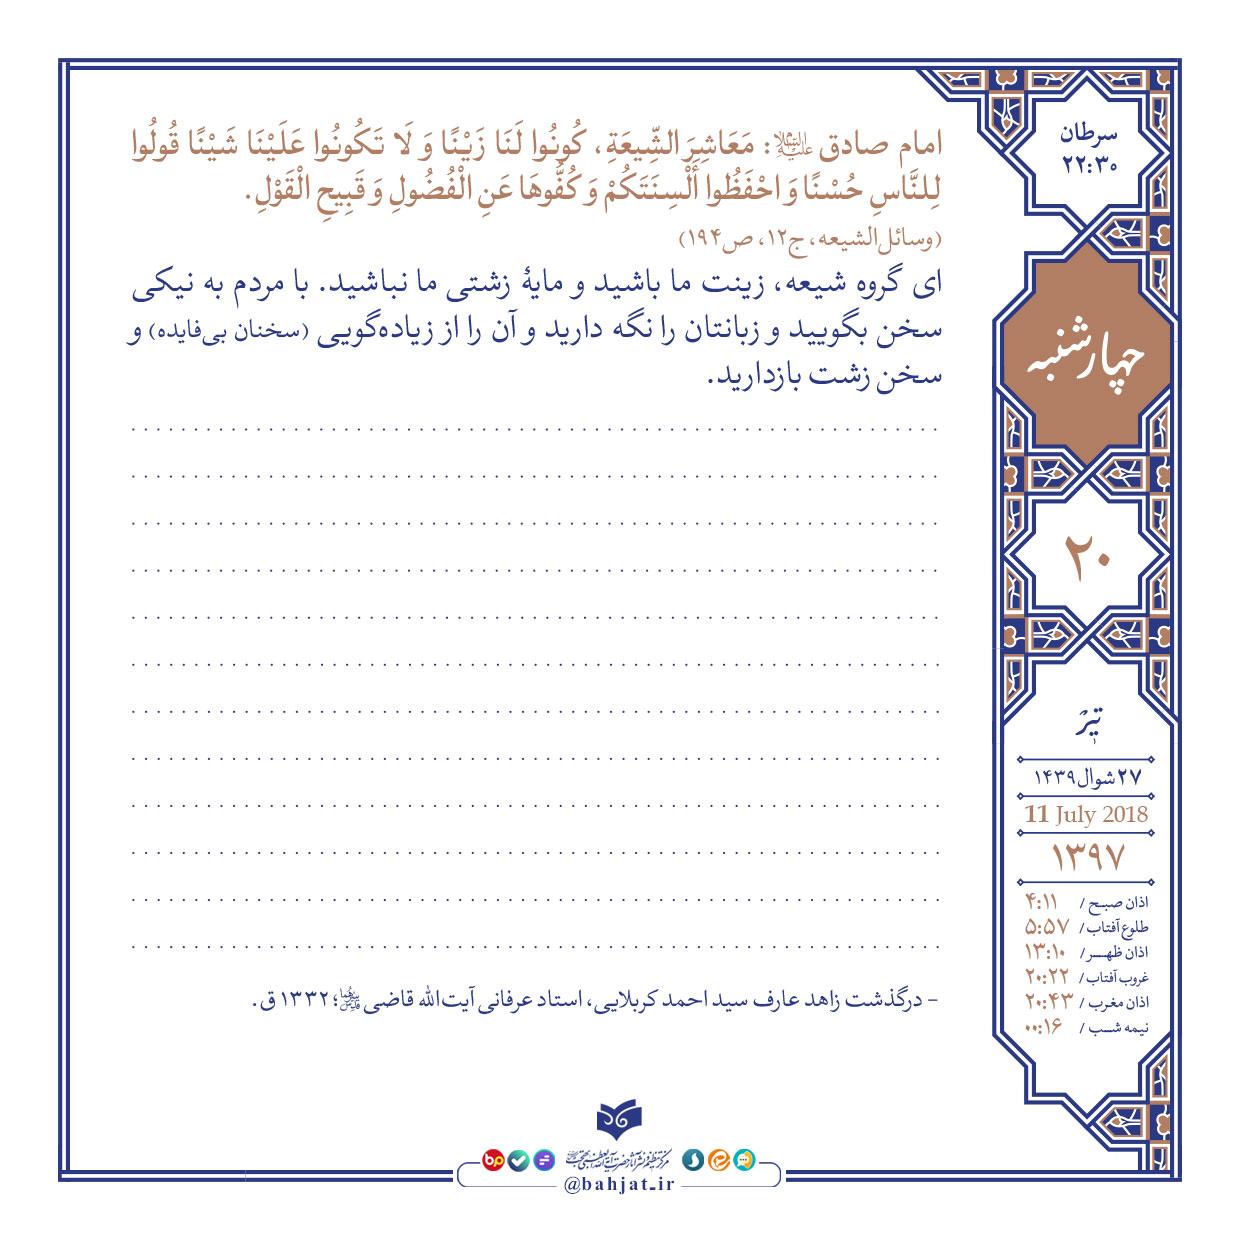 امام صادق علیه‌السلام: مَعَاشِرَ الشِّیعَةِ، کُونُوا لَنَا زَیْنًا وَ لَا تَکُونُوا عَلَیْنَا شَیْنًا قُولُوا
لِلنَّاسِ حُسْنًا وَ احْفَظُوا أَلْسِنَتَکُمْ وَ کُفُّوهَا عَنِ الْفُضُولِ وَ قَبِیحِ الْقَوْلِ.
(وسائل‌الشیعه، ج۱۲، ص۱۹۴)
ای گروه شیعه، زینت ما باشید و مایهٔ زشتی ما نباشید. با مردم به نیکی
سخن بگویید و زبانتان را نگه دارید و آن را از زیاده‌گویی (سخنان بی‌فایده) و
سخن زشت بازدارید.
- درگذشت زاهد عارف سید احمد کربلایی، استاد عرفانی آیت‌الله قاضی؛ ۱۳۳۲ ق.
سرطان
۲۲:۳۰
چهارشنبه
۲۰
تیر
۲۷ شوال ۱۴۳۹
11 July 2018
۱۳۹۷
اذان صبح / ۴:۱۱
طلوع آفتاب / ۵:۵۷
اذان ظهر / ۱۳:۱۰
غروب آفتاب / ۲۰:۲۲
اذان مغرب / ۲۰:۴۳
نیمه شب / ۰۰:۱۶
bp
@bahjat.ir